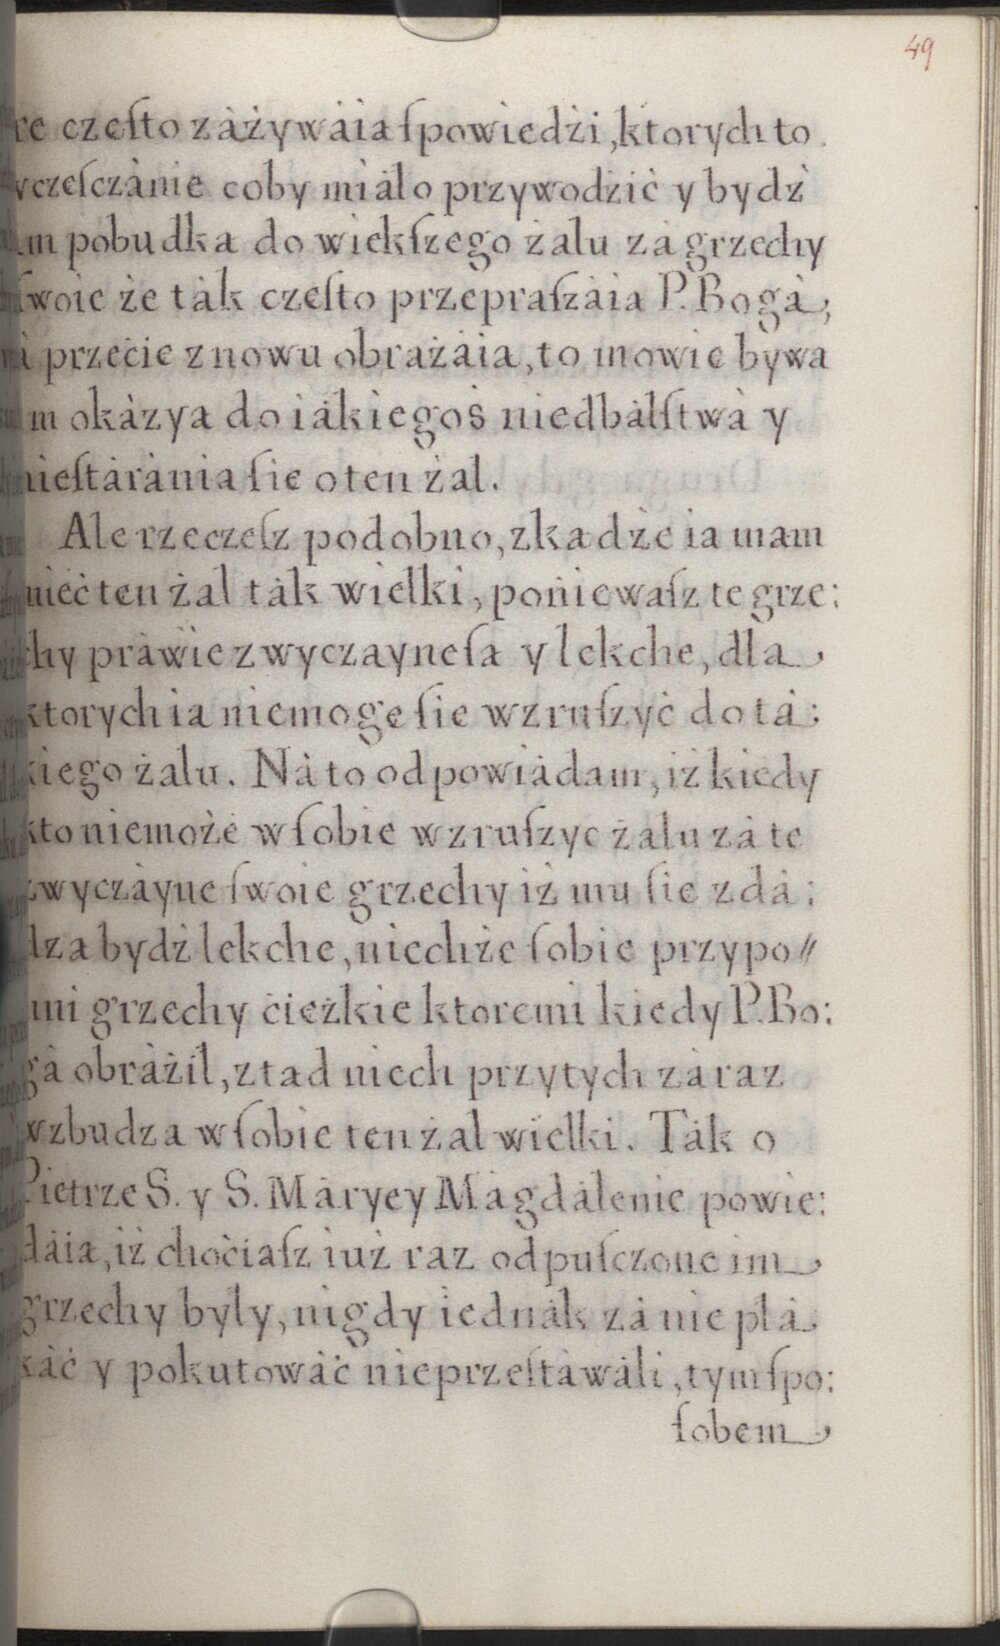 49
re czeſto zàżywàia ſpowiedźi, ktorych to
vczeſczànie coby miàło przywodźić y bydź
im pobudka do wiekſzego żalu zà grzechy
ſwoie że tàk czeſto przepraſzàia P. Bogà,
à przećie znowu obrażàia, to mowie bywa
im okàzya do iàkiegoś niedbàlſtwà y
nieſtàrània ſie o ten żal.
Ale rzeczeſz podobno, zkadże ia mam
mieć ten żal tàk wielki, poniewaſz te grze:
chy pràwie zwyczayne ſa y lekche, dla
ktorych ia niemoge ſie wzruſzyć do tà:
kiego żalu. Nà to odpowiàdam, iż kiedy
kto niemoże w ſobie wzruſzyc żalu zà te
zwyczàyne ſwoie grzechy iż mu ſie zdà:
dza bydź lekche, niechże ſobie przypo//
mi grzechy ćieżkie ktoremi kiedy P. Bo:
gà obràźił, ztad niech przytych zàraz
wzbudza w ſobie ten żal wielki. Tàk o
Pietrze S. y S. Màryey Màgdàlenie powie:
dàia, iż choćiaſz iuż raz odpuſczone im
grzechy były, nigdy iednàk zà nie płà
kàć y pokutowàć nieprzeſtàwàli, tym ſpo:
ſobem